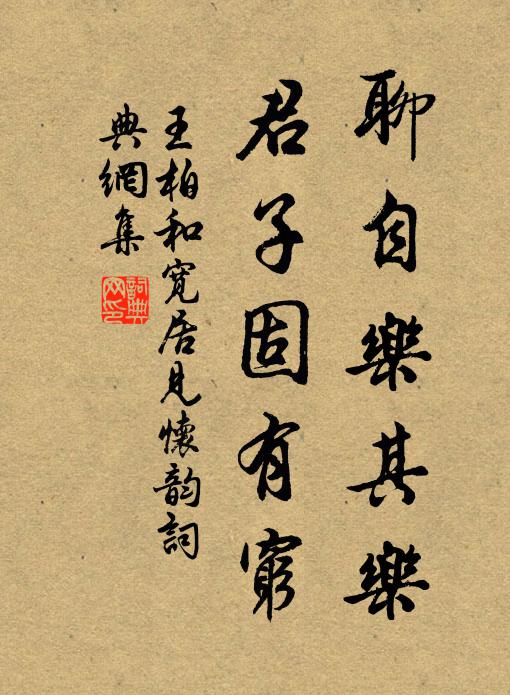 聊自樂其樂
君子固有窮
王柏和寬居見懷韵詞
典網集
詞典
网印